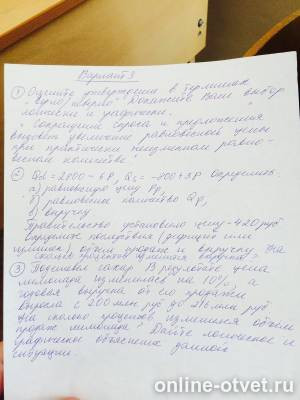 Вариант 3
① Оцените утверждения в терминах
"верно/неверно". Докажите Ваш выбор
логически и графически.
"Сокращение спроса и предложения
вызовет увеличение равновесной цены
при практически неизменном равно-
весном количестве"
② Qd = 2800 - 6P, Qs = -800+3P Определить:
а) равновесную цену Pp,
б) равновесное количество Qp,
в) выручку
Правительство установило цену - 420 руб
Определ. последствия (дефицит или
излишек), объем продаж и выручку. На
сколько процентов изменится выручка?
③ Подешевел сахар. В результате цена
мармелада изменилась на 10%, а
годовая выручка от его продажи
выросла с 200 млн руб до 216 млн руб
На сколько процентов изменился объем
продаж мармелада? Дайте логическое и
графическое объяснение данной
ситуации.
online-otvet.ru